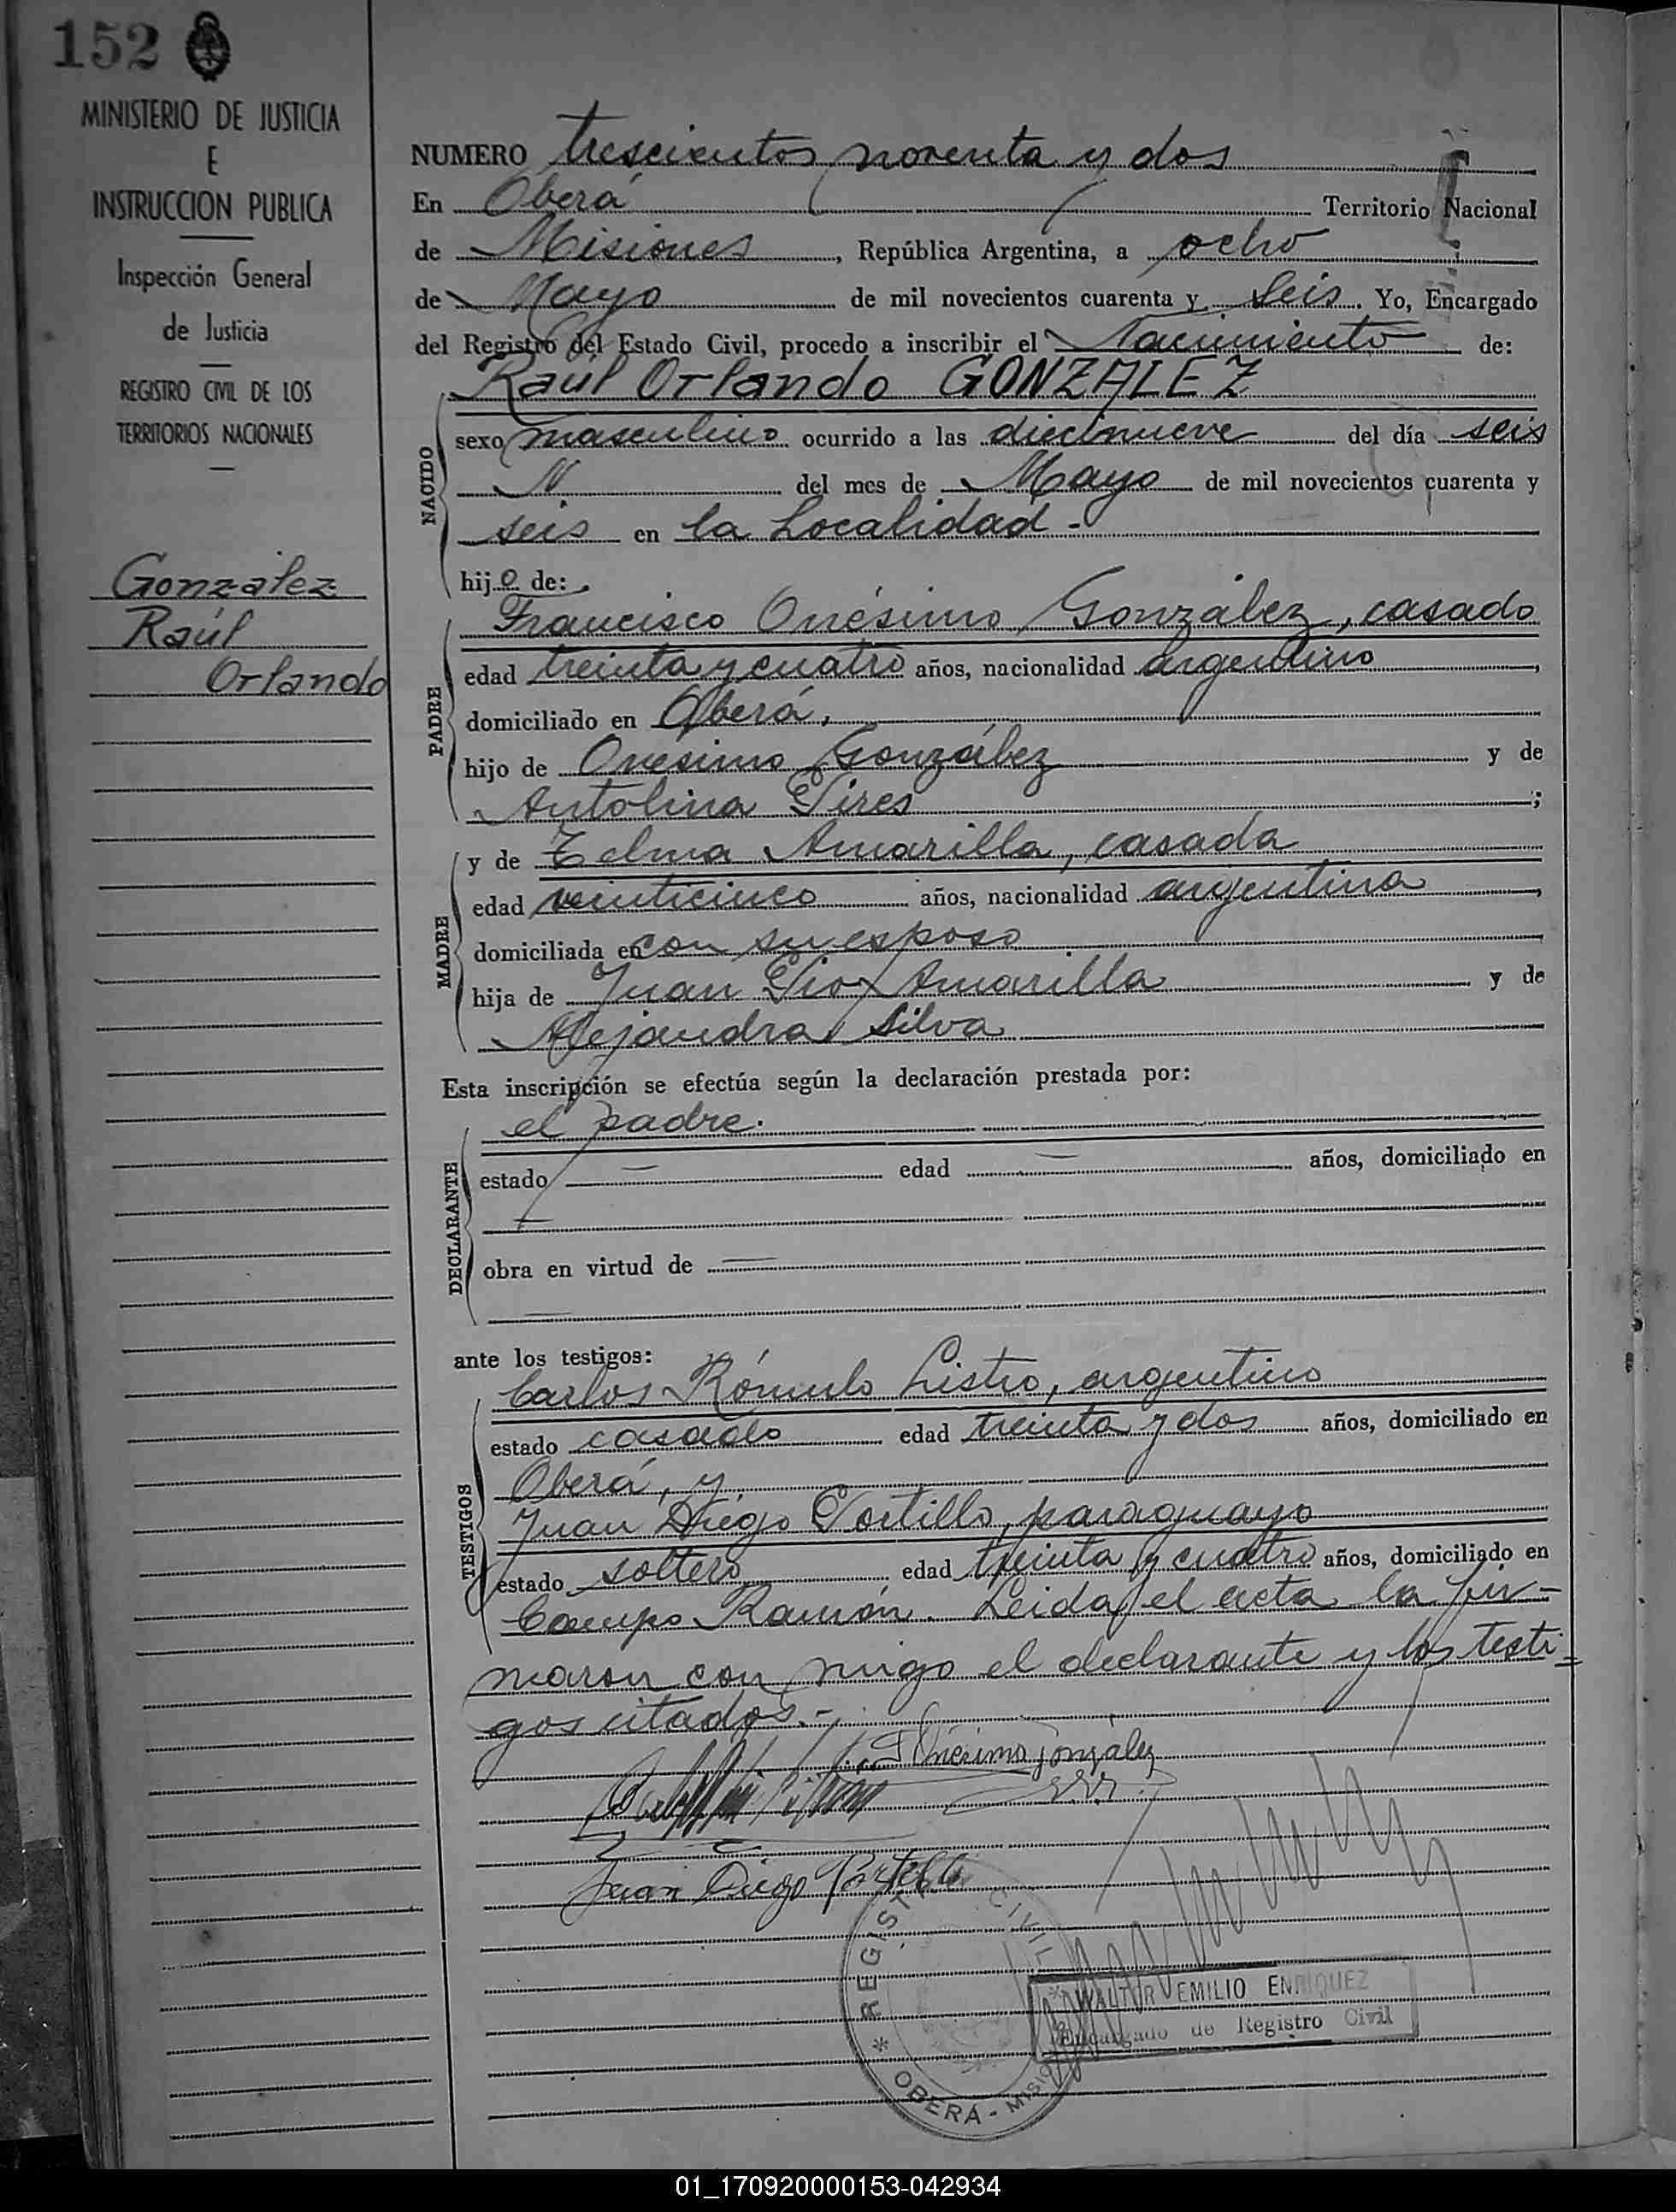 152
MINISTERIO DE JUSTICIA
E
INSTRUCCION PUBLICA
Inspección General
de Justicia
REGISTRO CIVIL DE LOS
TERRITORIOS NACIONALES
González
Raúl
Orlando
NUMERO trescientos noventa y dos
En Oberá Territorio Nacional
de Misiones, República Argentina, a ocho
de Mayo de mil novecientos cuarenta y seis. Yo, Encargado
del Registro del Estado Civil, procedo a inscribir el Nacimiento de:
Raúl Orlando GONZALEZ
NACIDO
sexo masculino ocurrido a las diecinueve del día seis
del mes de Mayo de mil novecientos cuarenta y
seis en la Localidad.-
hijo de:
PADRE
Francisco Onésimo González, casado
edad treinta y cuatro años, nacionalidad argentino,
domiciliado en Oberá,
hijo de Onésimo González y de
Antolina Pires;
MADRE
y de Telma Amarilla, casada
edad veinticinco años, nacionalidad argentina,
domiciliada en con su esposo,
hija de Juan Pio Amarilla y de
Alejandra Silva
Esta inscripción se efectúa según la declaración prestada por:
DECLARANTE
el padre.
estado — edad — años, domiciliado en
—
obra en virtud de —
—
ante los testigos:
TESTIGOS
Carlos Rómulo Listro, argentino
estado casado edad treinta y dos años, domiciliado en
Oberá, y
Juan Diego Portillo, paraguayo
estado soltero edad treinta y cuatro años, domiciliado en
Campo Ramón. Leida el acta la fir-
maron con migo el declarante y los testi=
gos citados.-
Onésimo González
Juan Diego Portillo
REGISTRO CIVIL
* OBERÁ - MISIONES
WALTER EMILIO ENRIQUEZ
Encargado de Registro Civil
01_170920000153-042934